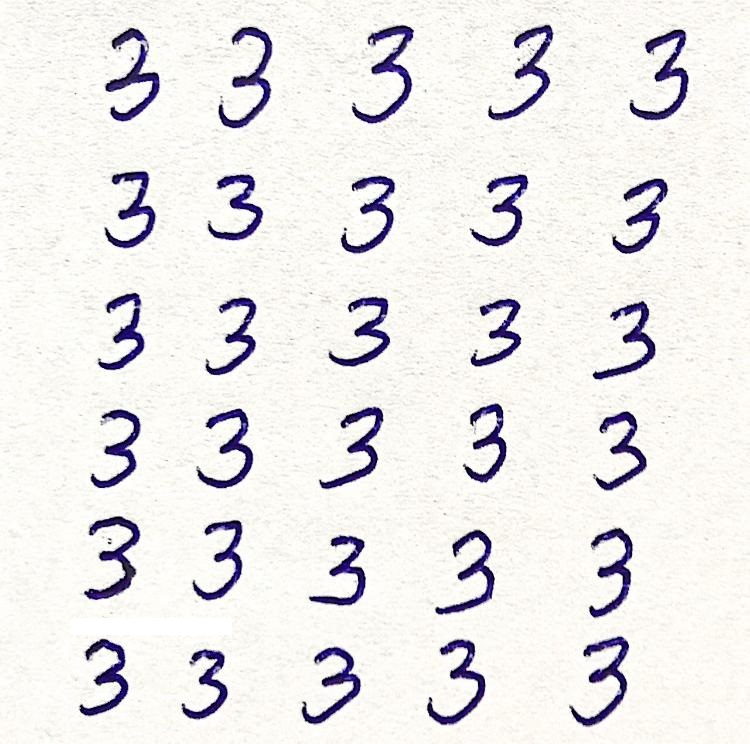 3 3 3 3 3
3 3 3 3 3
3 3 3 3 3
3 3 3 3 3
3 3 3 3 3
3 3 3 3 3